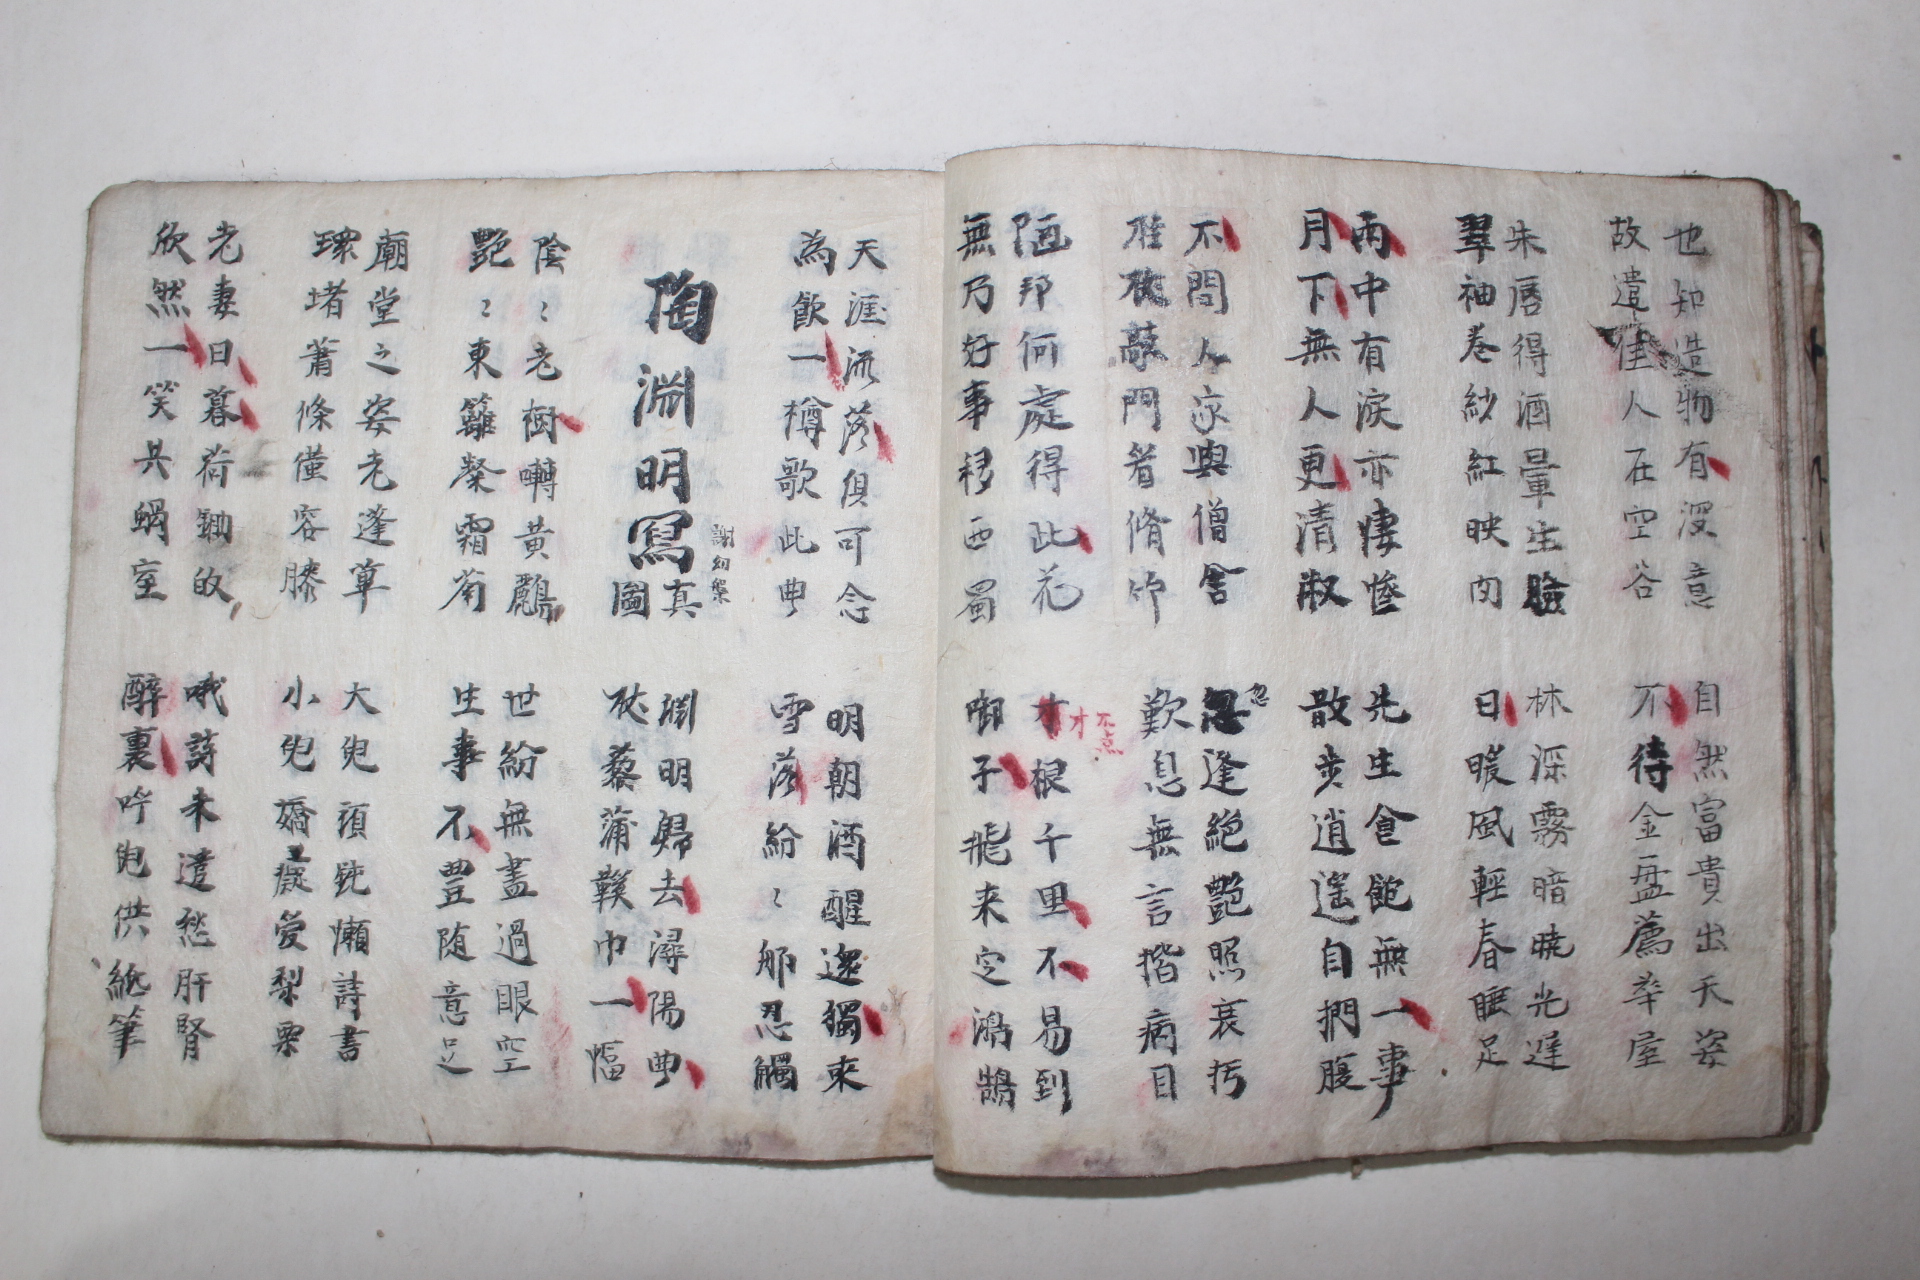 也知造物有深意
故遣佳人在空谷
自然富貴出天姿
不待金盤薦華屋
朱唇得酒暈生臉
翠袖卷紗紅映肉
林深霧暗曉光遅
日暖風輕春睡足
雨中有淚亦悽慘
月下無人更清淑
先生食飽無一事
散步逍遙自捫腹
不問人家與僧舍
柱杖敲門看脩竹
忽逢絕艷照衰朽
忽
歎息無言揩病目
陋邦何處得此花
無乃好事移西蜀
才根千里不易到
才 不点
啣子飛来定鴻鵠
天涯流落俱可念
為飲一樽歌此曲
明朝酒醒還獨來
雪落紛〻那忍觸
陶淵明寫真圖
謝幼槃
淵明歸去潯陽曲
杖藜蒲鞵巾一幅
陰〻老樹囀黃鸝
艷〻東籬粲霜菊
世紛無盡過眼空
生事不豊随意足
廟堂之姿老蓬蓽
環堵蕭條僅容膝
大兒頑鈍懶詩書
小兒嬌癡愛梨栗
老妻日暮荷鋤皈
欣然一笑共蝸室
哦詩未遣愁肝腎
醉裏呼兒供紙筆